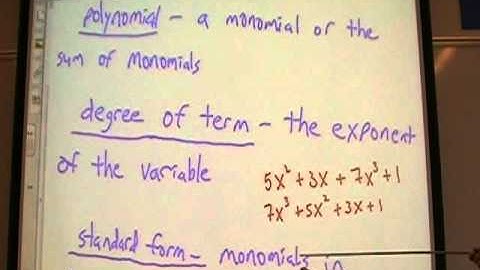 polynomial - a monomial or the
sum of monomials
degree of term - the exponent
of the variable
5x² + 3x + 7x³ + 1
7x³ + 5x² + 3x + 1
standard form - monomials in